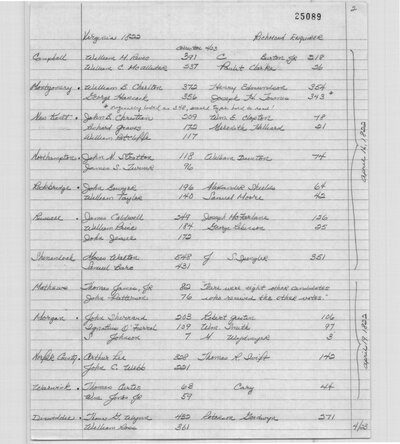 25089
2
Virginia 1822 Richmond Enquirer
Campbell William M. Rives 391 C Burton Jr 218
William C. McAllister 237 Pawlet Clarke 26
Montgomery • William B. Charlton 372 Henry Edmundson 354
George Hancock 356 Joseph H. Townes 343 *
* originally listed as 348, second type hard to read!
April 16, 1822
New Kent • John B. Christian 209 Wm. E. Clopton 78
Richard Graves 172 Meredith Holliard 21
William Ratcliffe 117
Northampton • John N. Stratton 118 William Dunton 74
James S. Turner 96
Rockbridge • John Bowyer 196 Alexander Shields 64
William Taylor 140 Samuel Moore 42
Russell • James Caldwell 249 Joseph McFarlane 126
William Price 184 George Robinson 25
John Jessee 172
Shenandoah Moses Walton 548 J S Spengler 351
Samuel Bare 431
Mathews Thomas James, Jr 82 "There were eight other candidates
John Patterson 76 who received the other votes."
Morgan • John Sherrard 203 Robert Gustin 106
Ignatius O'Ferral 109 Wm. Smith 97
S Johnson 7 M 3
April 19, 1822
Norfolk County • Arthur Lee 328 Thomas R. Swift 142
John C. Webb 221
Warwick • Thomas Curtis 68 Cary 44
Wm. Jones Jr 59
Dinwiddie • Thos. G. Wynne 482 Robinson Goodwyn 271
William Rose 361
4/23